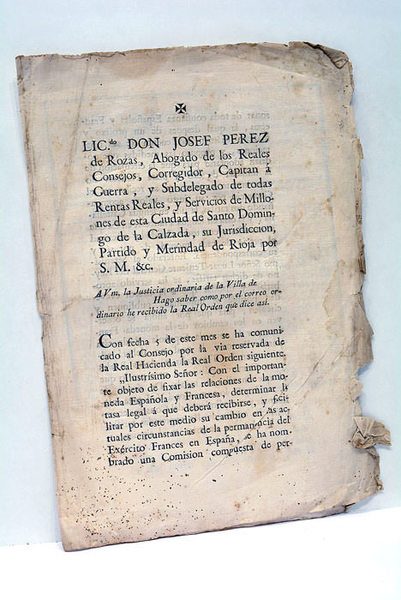 ✠
LIC.do DON JOSEF PEREZ
de Rozas, Abogado de los Reales
Consejos, Corregidor, Capitan á
Guerra, y Subdelegado de todas
Rentas Reales, y Servicios de Millo-
nes de esta Ciudad de Santo Domin-
go de la Calzada, su Jurisdiccion,
Partido y Merindad de Rioja por
S. M. &c.
A Vm. la Justicia ordinaria de la Villa de
Hago saber como por el correo or-
dinario he recibido la Real Orden que dice así.
Con fecha 5 de este mes se ha comuni-
cado al Consejo por la via reservada de
la Real Hacienda la Real Orden siguiente.
„Ilustrísimo Señor: Con el importan-
te objeto de fixar las relaciones de la mo-
neda Española y Francesa, determinar la
tasa legal á que deberá recibirse, y facil-
itar por este medio su cambio en las ac-
tuales circunstancias de la permanencia del
Exército Frances en España, se ha nom-
brado una Comision compuesta de per-